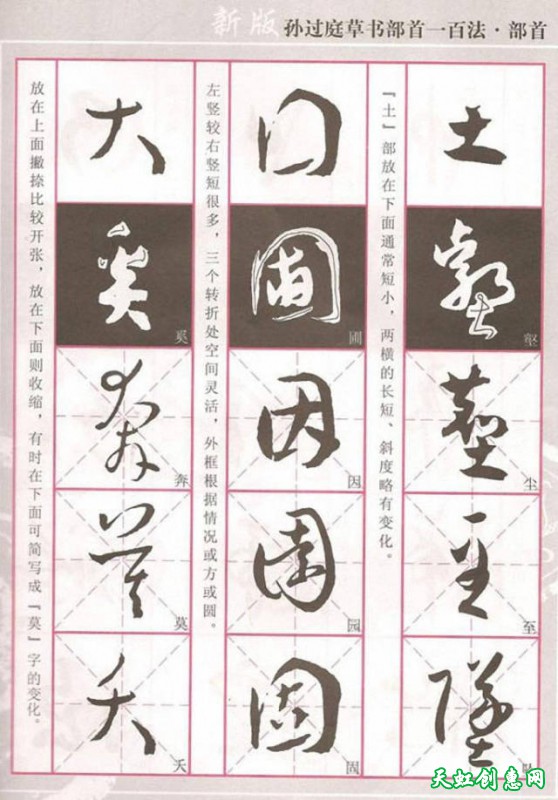 新版 孙过庭草书部首一百法·部首
土
『土』部放在下面通常短小，两横的长短、斜度略有变化。
壑
尘
至
坠
囗
左竖较右竖短很多，三个转折处空间灵活，外框根据情况或方或圆。
圃
因
园
固
大
放在上面撇捺比较开张，放在下面则收缩，有时在下面可简写成『莫』字的变化。
奚
奔
莫
夭
天虹创惠网